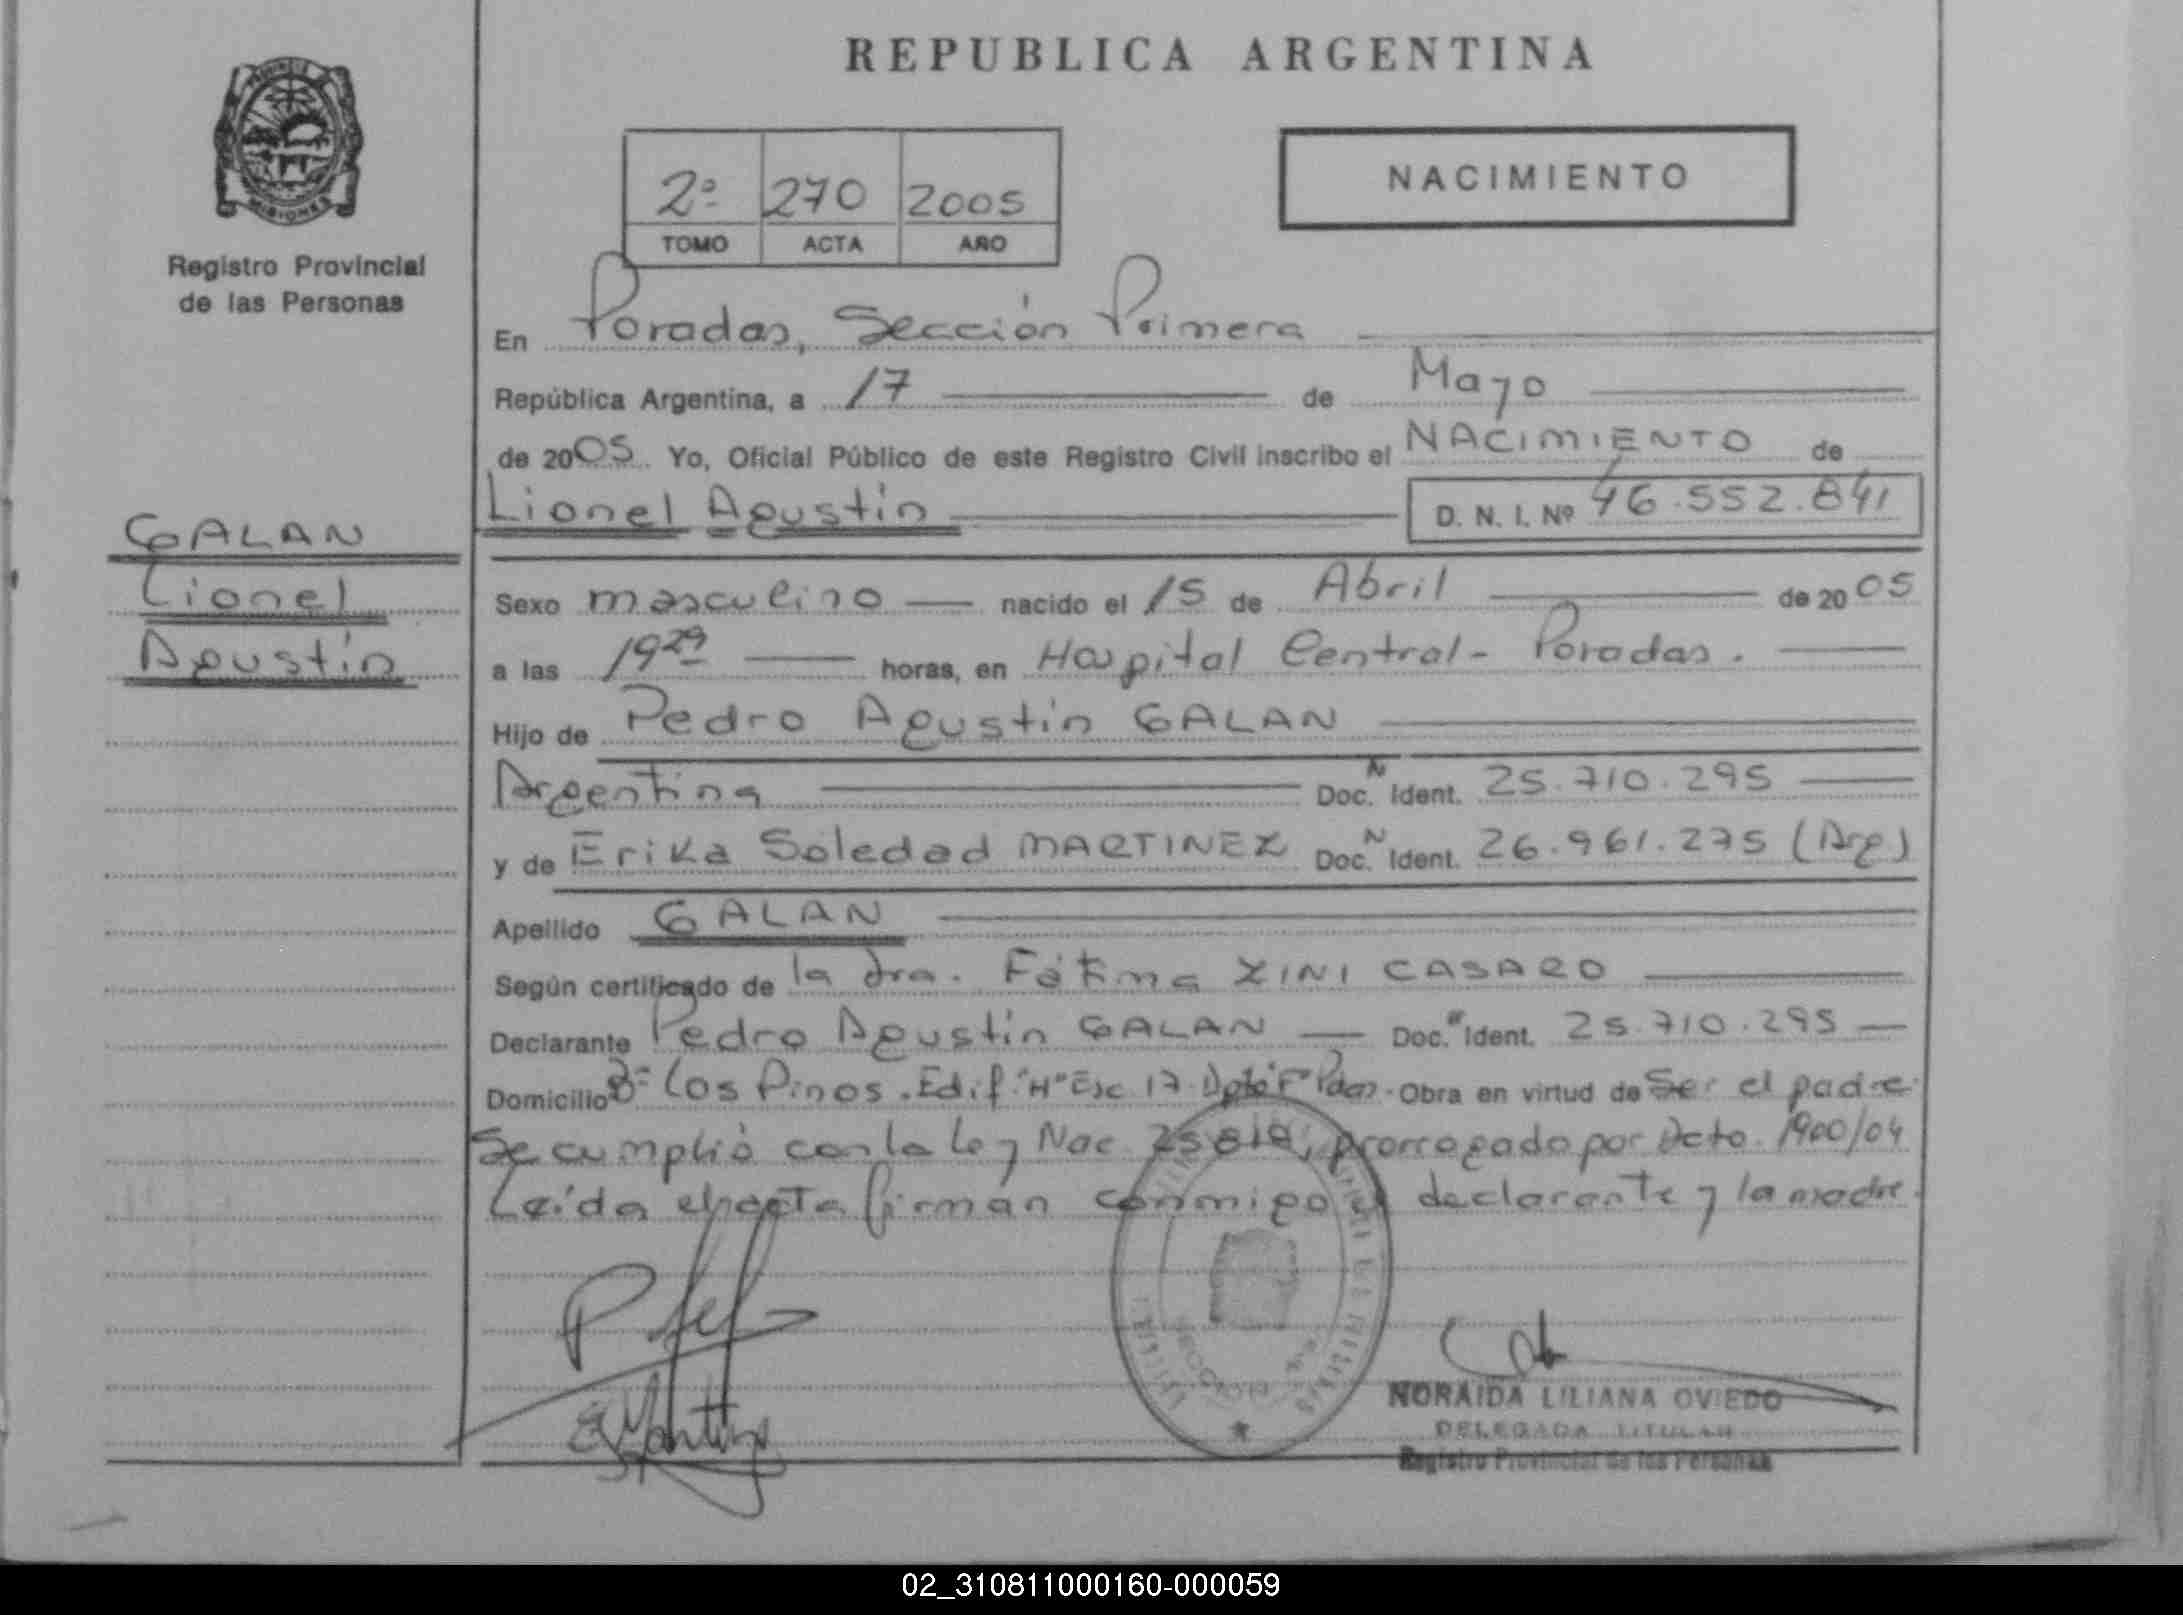 REPUBLICA ARGENTINA
MISIONES
Registro Provincial
de las Personas
2º 270 2005
TOMO ACTA AÑO
NACIMIENTO
En Posadas, Sección Primera
República Argentina, a 17 de Mayo
de 2005 Yo, Oficial Público de este Registro Civil inscribo el NACIMIENTO de
Lionel Agustín
D. N. I. Nº 46.552.841
GALAN
Lionel
Agustín
Sexo masculino nacido el 15 de Abril de 2005
a las 19 29 horas, en Hospital Central - Posadas.
Hijo de Pedro Agustín GALAN
Argentina Doc. N Ident. 25.710.295
y de Erika Soledad MARTINEZ Doc. N Ident. 26.961.275 (Arg)
Apellido GALAN
Según certificado de la dra. Fátima ZINI CASARO
Declarante Pedro Agustín GALAN Doc. Ident. 25.710.295
Domicilio Bº Los Pinos. Edif. "H" Esc 17 Dpto "F" Pdas. Obra en virtud de Ser el padre
Se cumplió con la Ley Nac. prorrogado por Dcto. 1900/04
Leída el acta firman conmigo el declarante y la madre.
NORAIDA LILIANA OVIEDO
DELEGADA TITULAR
Registro Provincial de las Personas
02_310811000160-000059